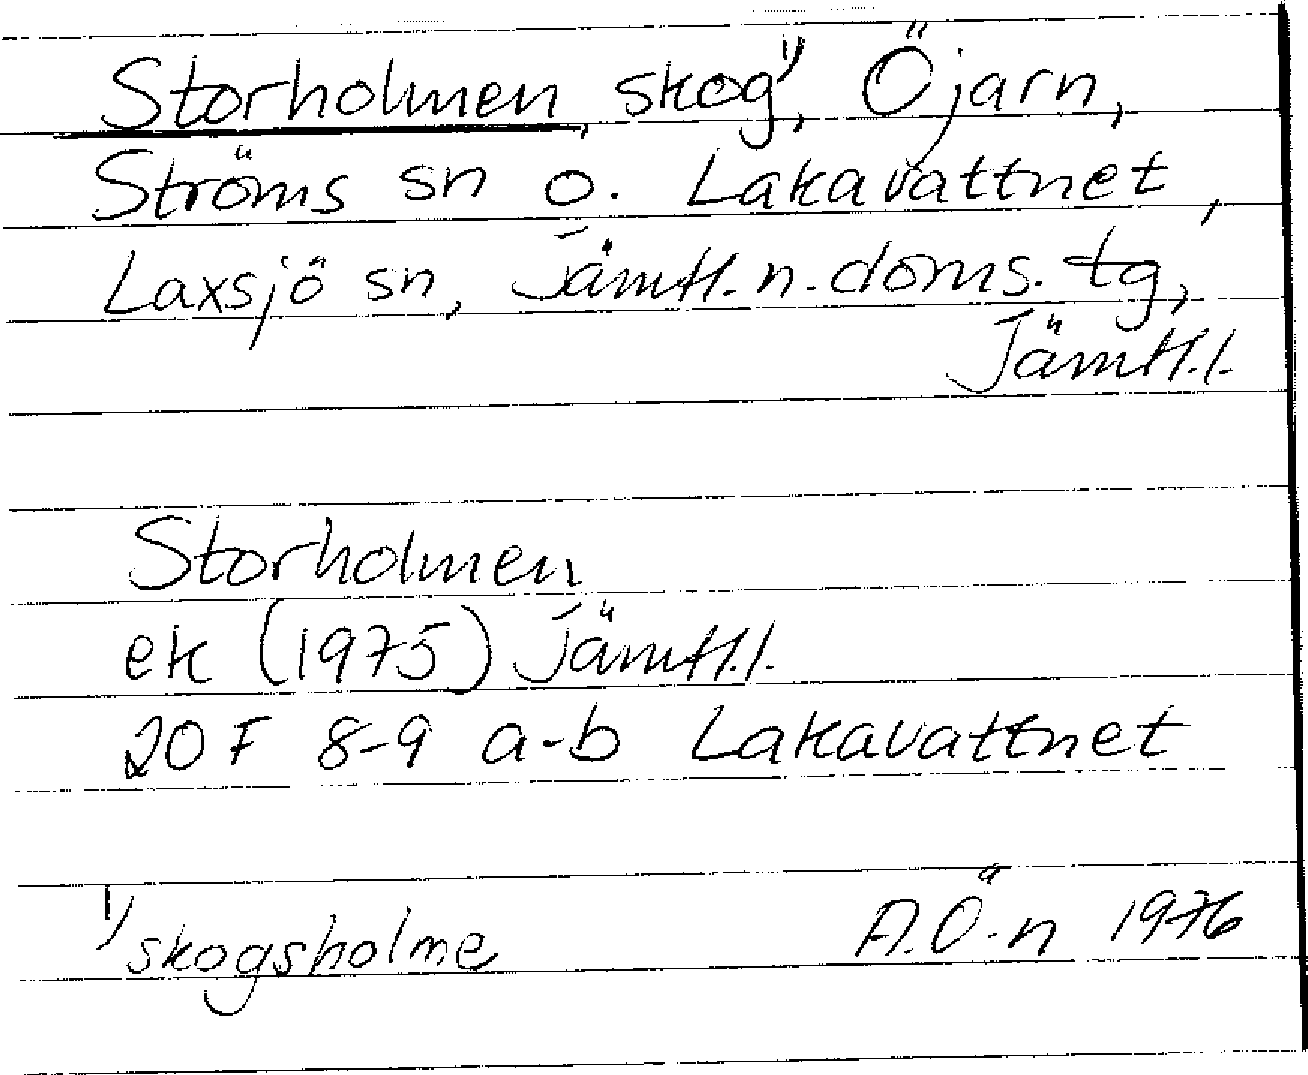 Storholmen, skog 1), Öjarn,
Ströms sn o. Lakavattnet,
Laxsjö sn, Jämtl. n. doms. tg,
Jämtl. l.
Storholmen
ek (1975) Jämtl. l.
20 F 8-9 a-b Lakavattnet
1) skogsholme
A.Ö-n 1976